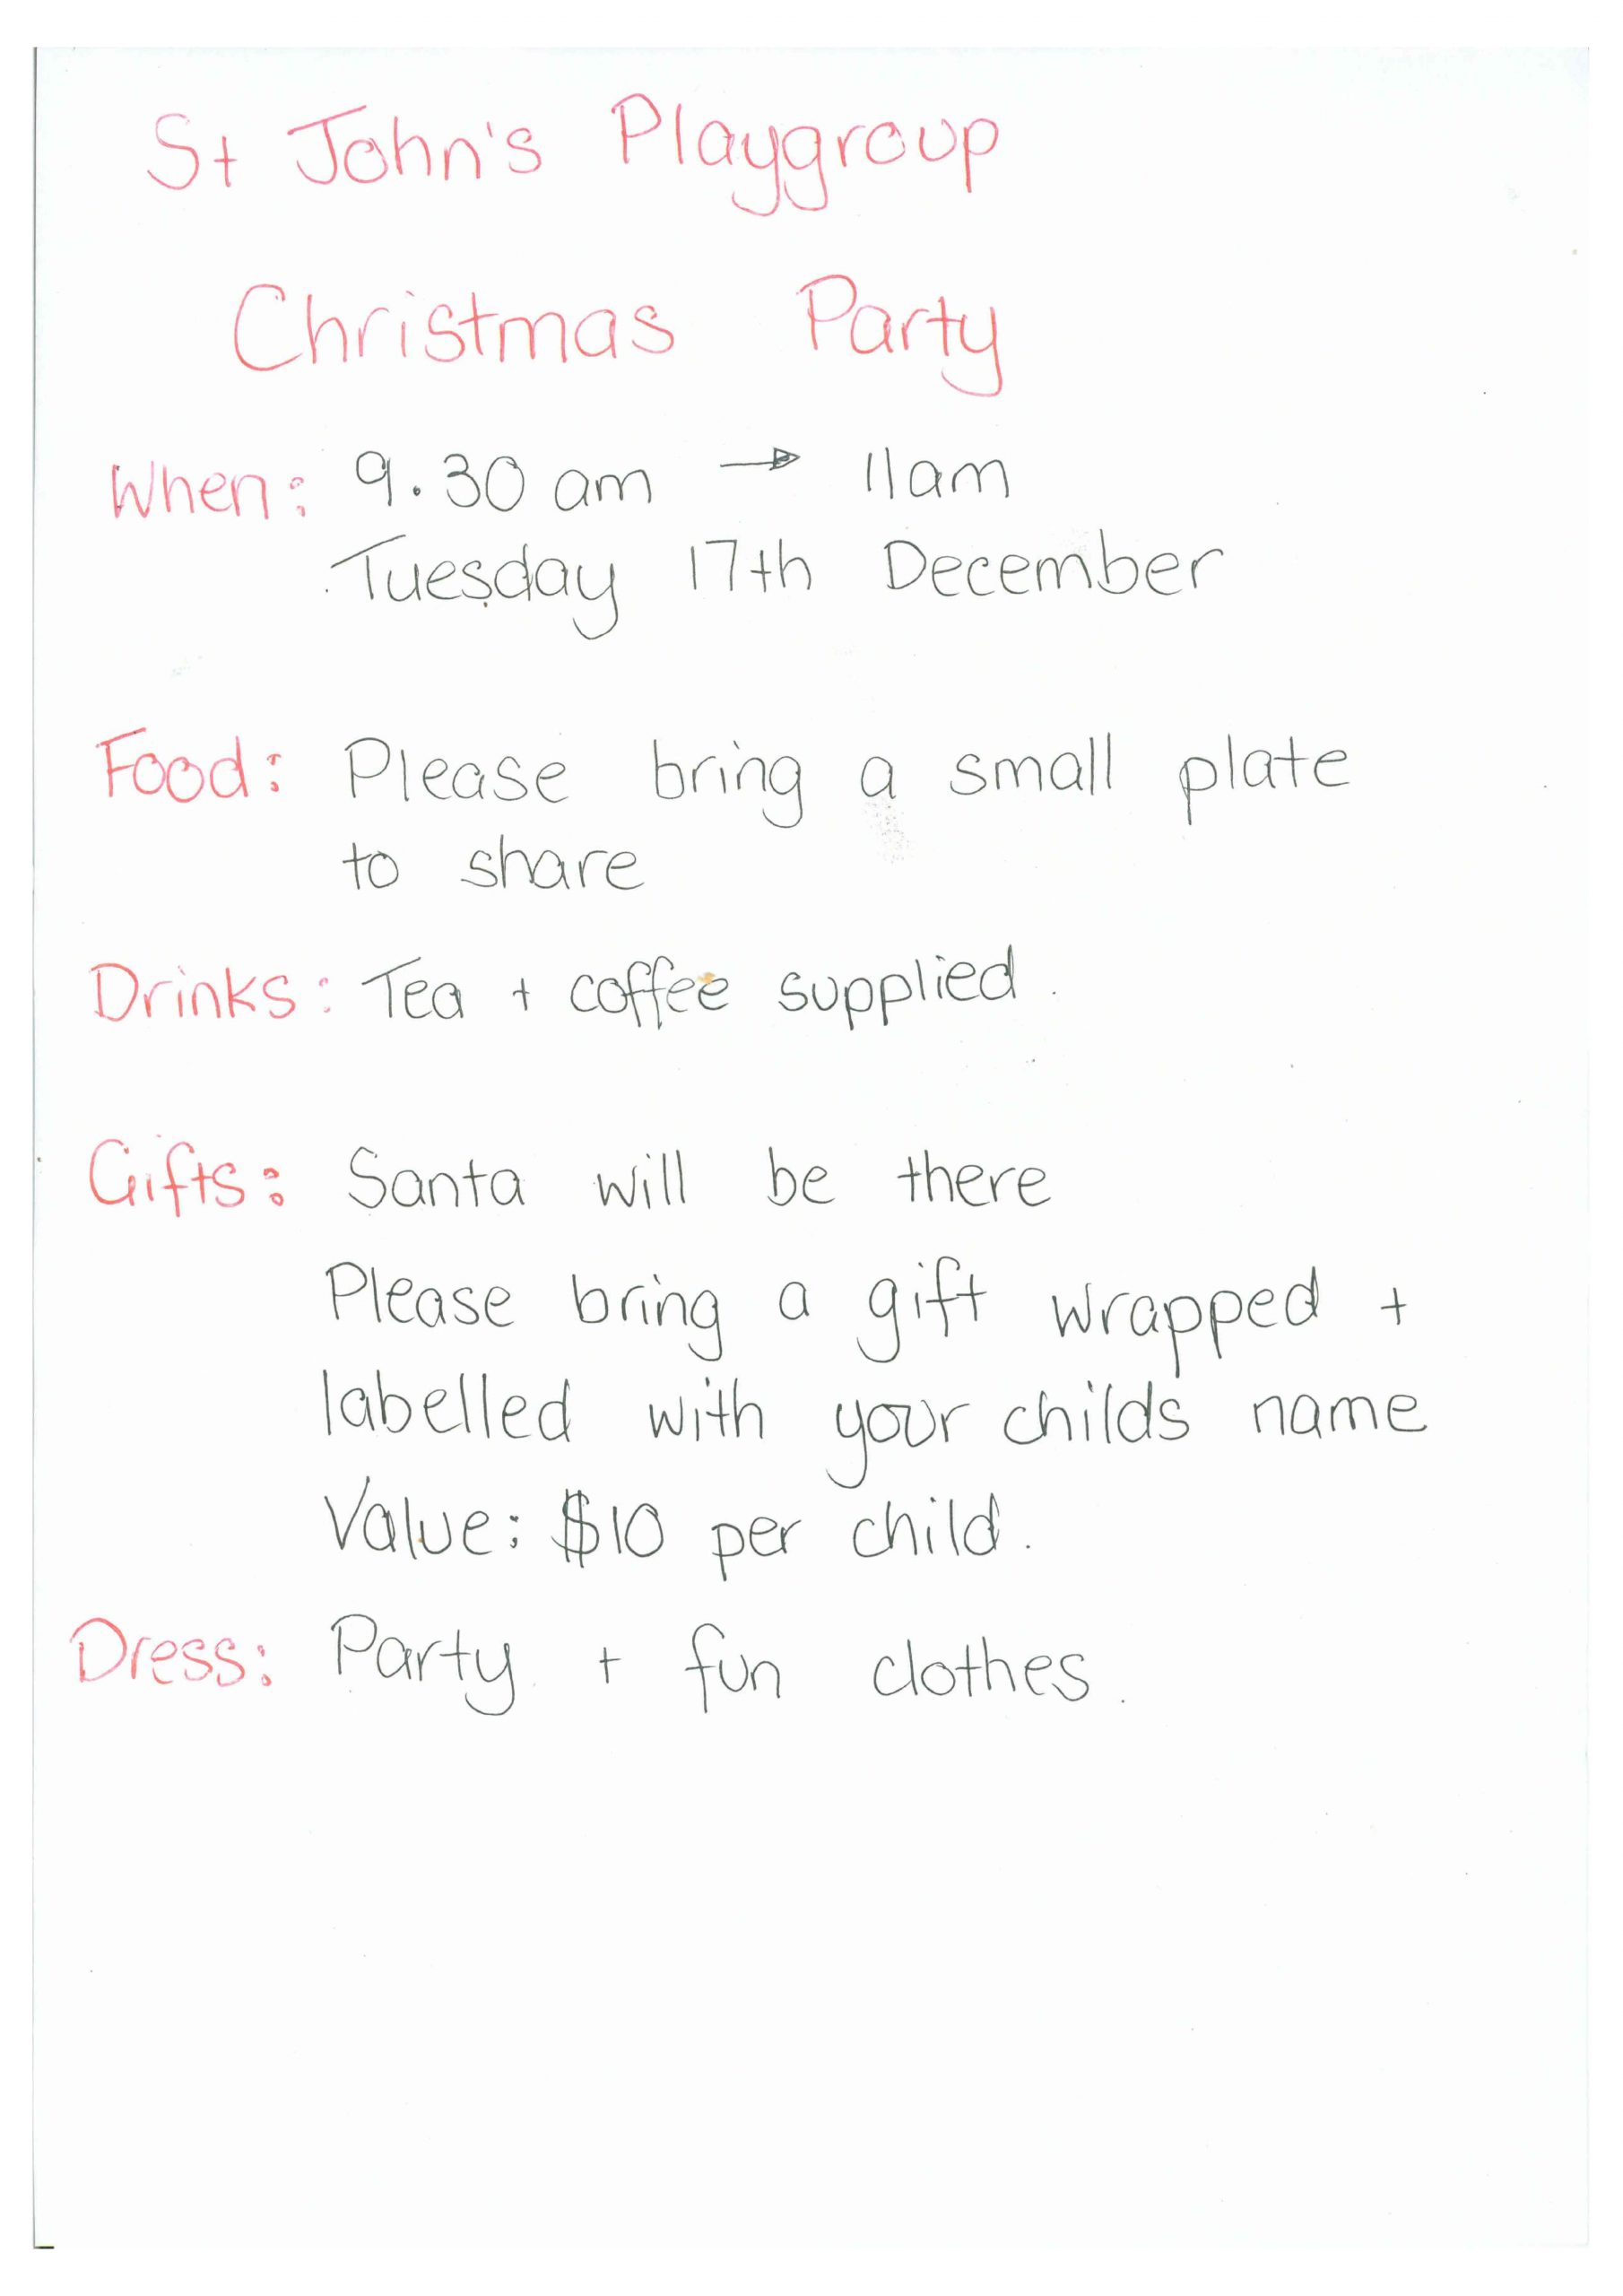 St John's Playgroup
Christmas Party
When: 9.30 am → 11am
Tuesday 17th December
Food: Please bring a small plate
to share
Drinks: Tea + coffee supplied.
Gifts: Santa will be there
Please bring a gift wrapped +
labelled with your childs name
Value: $10 per child.
Dress: Party + fun clothes.